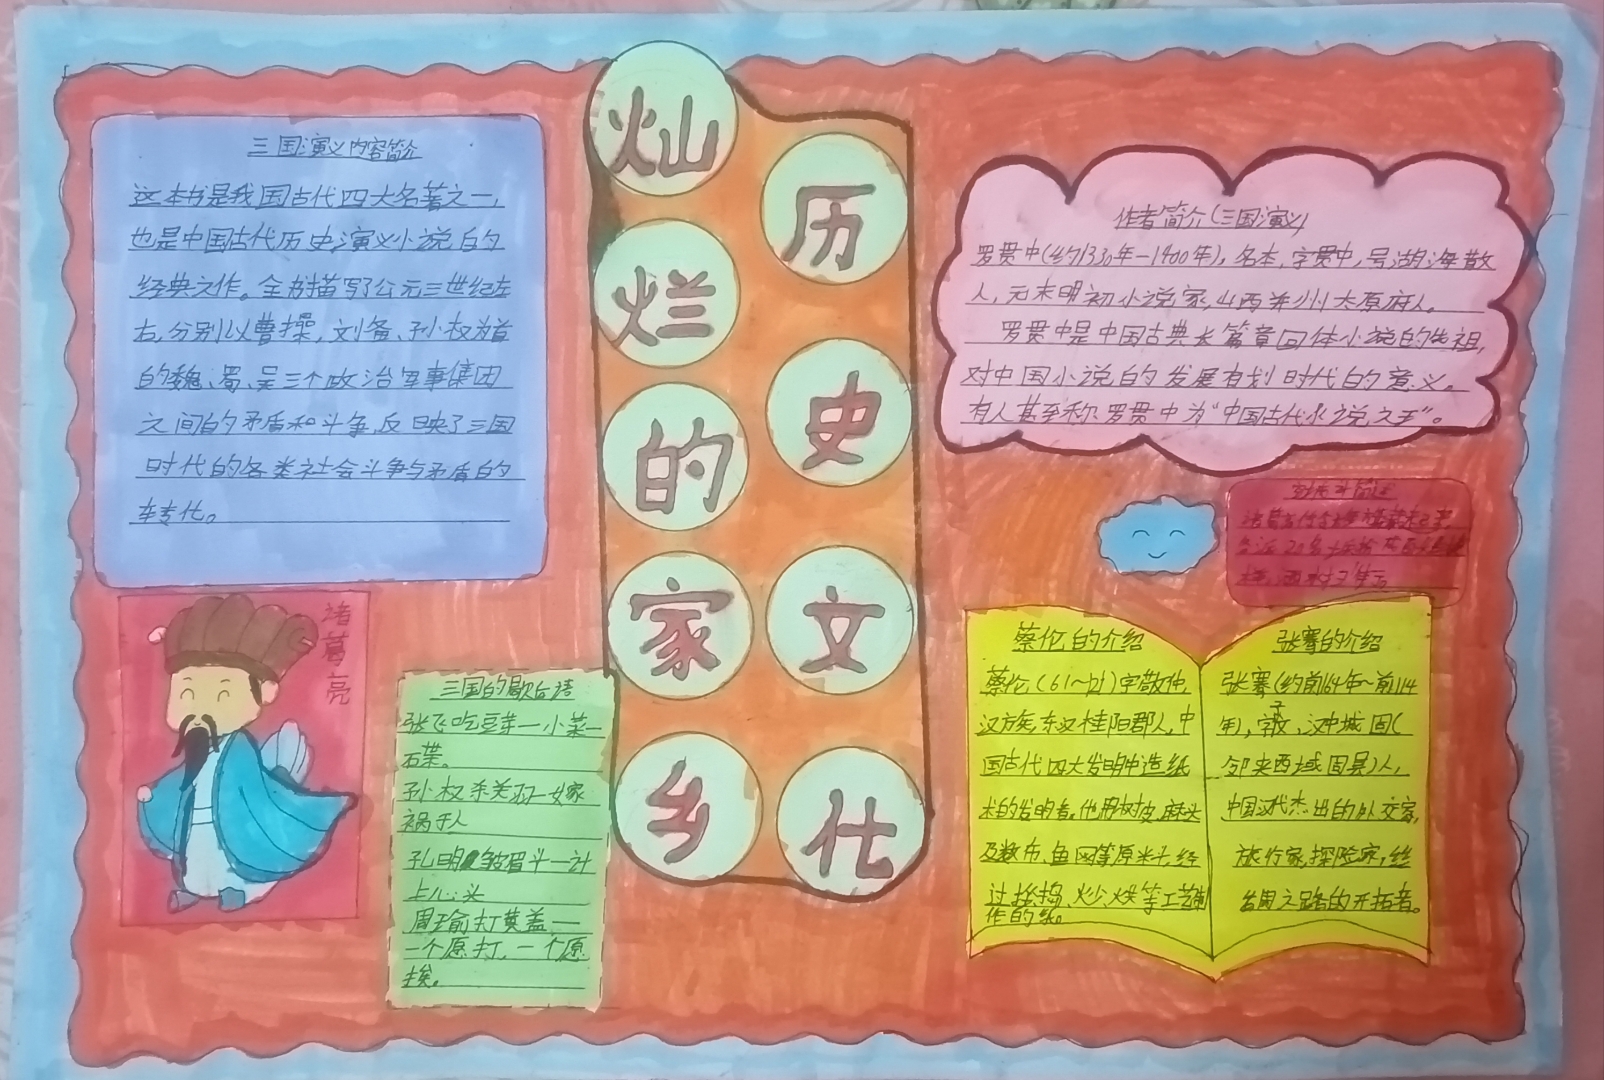 灿烂的家乡
历史文化
三国演义内容简介
这本书是我国古代四大名著之一,
也是中国古代历史演义小说的
经典之作。全书描写了公元三世纪左
右,分别以曹操,刘备、孙权为首
的魏、蜀、吴三个政治军事集团
之间的矛盾和斗争,反映了三国
时代的各类社会斗争与矛盾的
转化。
诸葛亮
三国的歇后语
张飞吃豆芽一小菜一
碟。
孙权杀关羽一嫁
祸于人
孔明皱眉头一计
上心头
周瑜打黄盖一
一个愿打,一个愿
挨。
作者简介(三国演义)
罗贯中(约1330年-1400年),名本,字贯中,号湖海散
人,元末明初小说家,山西并州太原府人。
罗贯中是中国古典长篇章回体小说的先祖,
对中国小说的发展有划时代的意义。
有人甚至称罗贯中为“中国古代小说之王”。
蔡伦的介绍
蔡伦(61~121)字敬仲,
汉方族,东汉桂阳郡人,中
国古代四大发明中造纸
术的发明者。他用树皮,麻头
及敝布、鱼网等原料,经
过挫捣、炒、烘等工艺制
作的纸。
张骞的介绍
张骞(约前164年~前114
年),字子文,汉中城固(
今陕西城固县)人,
中国汉代杰出的外交家,
旅行家,探险家,丝
绸之路的开拓者。